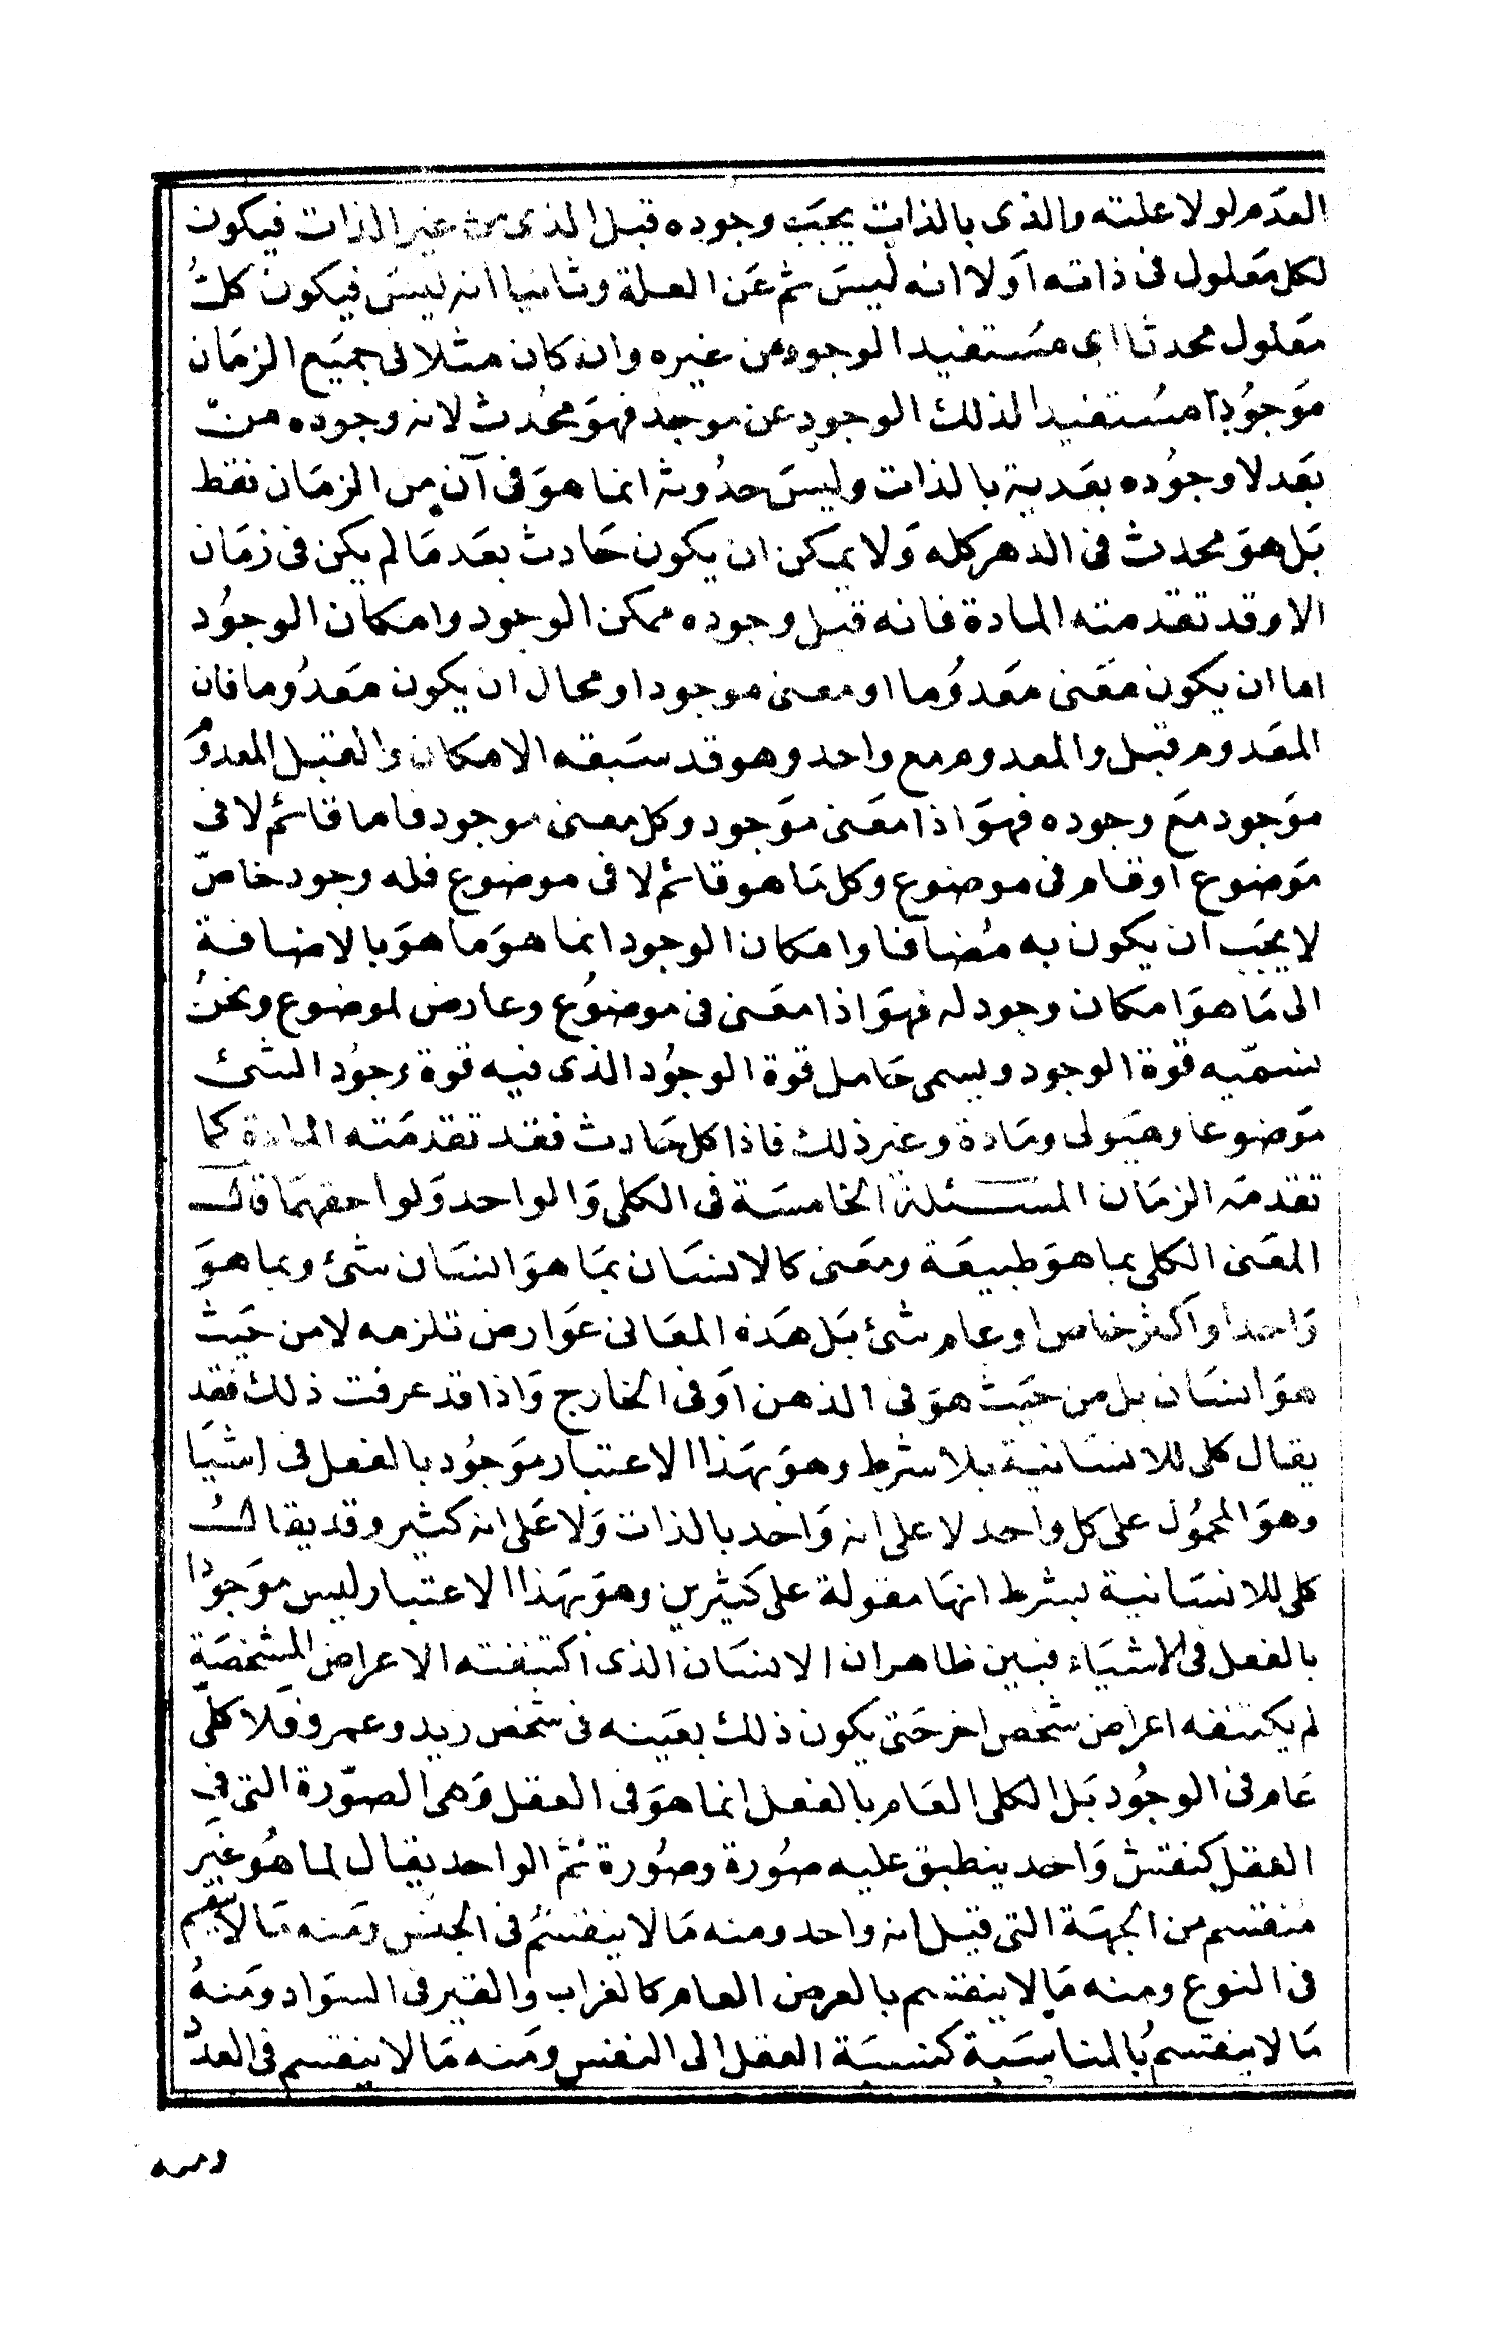 العدم لولا علته والذى بالذات يجب وجوده قبل الذى من غير الذات فيكون
لكل معلول فى ذاته اولا انه ليس ثم عن العلة وثانيا انه ليس فيكون كل
معلول محدثا اى مستفيد الوجود من غيره وان كان مثلا فى جميع الزمان
موجودا مستفيدا لذلك الوجود عن موجد فهو محدث لانه وجوده من
بعد لا وجوده بعدية بالذات وليس حدوثه انما هو فى آن من الزمان فقط
بل هو محدث فى الدهر كله ولا يمكن ان يكون حادث بعد ما لم يكن فى زمان
الا وقد تقدمته المادة فانه قبل وجوده ممكن الوجود وامكان الوجود
اما ان يكون معنى معدوما او معنى موجودا ومحال ان يكون معدوما فان
المعدوم قبل والمعدوم مع واحد وهو قد سبقه الامكان والقبل المعدوم
موجود مع وجوده فهو اذا معنى موجود وكل معنى موجود فاما قائم لا فى
موضوع او قام فى موضوع وكل ما هو قائم لا فى موضوع فله وجود خاص
لا يجب ان يكون به مضافا وامكان الوجود انما هو ما هو بالاضافة
الى ما هو امكان وجود له فهو اذا معنى فى موضوع وعارض لموضوع ونحن
نسميه قوة الوجود ويسمى حامل قوة الوجود الذى فيه قوة وجود الشئ
موضوعا وهيولى ومادة وغير ذلك فاذا كل حادث فقد تقدمته المادة كما
تقدمه الزمان المسئلة الخامسة فى الكلى والواحد ولواحقهما قال
المعنى الكلى بما هو طبيعة ومعنى كالانسان بما هو انسان شئ وبما هو
واحدا واكثر خاص او عام شئ بل هذه المعانى عوارض تلزمه لا من حيث
هو انسان بل من حيث هو فى الذهن او فى الخارج واذا قد عرفت ذلك فقد
يقال كلى للانسانية بلا شرط وهو بهذا الاعتبار موجود بالفعل فى اشيا
وهو المحمول على كل واحد لا على انه واحد بالذات ولا على انه كثير وقد يقال
كلى للانسانية بشرط انها مقولة على كثيرين وهو بهذا الاعتبار ليس موجودا
بالفعل فى الاشياء فبين ظاهر ان الانسان الذى اكتنفته الاعراض المشخصة
لم يكتنفه اعراض شخص اخر حتى يكون ذلك بعينه فى شخص زيد وعمرو فلا كلى
عام فى الوجود بل الكلى العام بالفعل انما هو فى العقل وهى الصورة التى فى
العقل كنقش واحد ينطبق عليه صورة وصورة ثم الواحد يقال لما هو غير
منقسم من الجهة التى قيل انه واحد ومنه ما لا ينقسم فى الجنس ومنه ما لا ينقسم
فى النوع ومنه ما لا ينقسم بالعرض العام كالغراب والقير فى السواد ومنه
ما لا ينقسم بالمناسبة كنسبة العقل الى النفس ومنه ما لا ينقسم فى العدد
ومنه